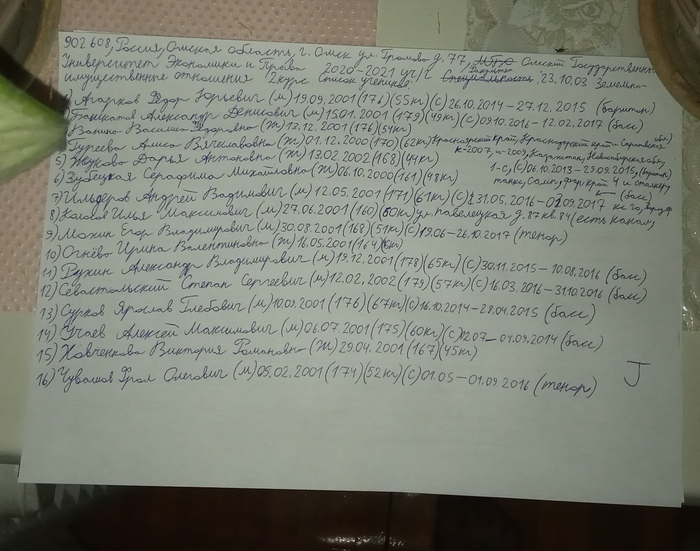 902608, Россия, Омская область, г. Омск ул. Громова д. 77, Омский Государственный
Университет Экономики и Права 2020-2021 уч/г закрыто Специальность 23.10.03 Земельно-
имущественные отношения 2 курс Список учеников:
1) Агарков Фёдор Юрьевич (м) 19.09.2001 (176) (55кг) (с) 26.10.2014 – 27.12.2015 (баритон)
2) Башкатов Александр Денисович (м) 15.01.2001 (179) (49кг) (с) 09.10.2016 – 12.02.2017 (басс)
3) Ванино Василиса Фёдоровна (ж) 13.12.2001 (176) (54кг)
4) Гуреева Алиса Вячеславовна (ж) 01.12.2000 (170) (62кг) Красноярский край, Краснодарский край – Саратовская обл)
к-2007, н-2009, Казахстан, Новосибирская обл,
5) Жукова Дарья Антоновна (ж) 13.02.2002 (168) (44кг)
1-с, (с) 06.10.2013 – 29.09.2015,
6) Зубецкая Серафима Михайловна (ж) 06.10.2000 (161) (48кг)
танки, Самп, фар край 4 и сталкер
7) Ильферов Андрей Вадимович (м) 12.05.2001 (171) (61кг) (с) 31.05.2016 – 02.09.2017 (басс)
кс го,
8) Каналов Илья Максимович (м) 27.06.2001 (160) (50кг) ул. павелецкая д. 87 кв. 84 (есть канал)
9) Мохин Егор Владимирович (м) 30.08.2001 (168) (51кг) (с) 19.06 – 26.10.2017 (тенор)
10) Огнёво Ирина Валентиновна (ж) 16.05.2001 (164)
11) Пухин Александр Владимирович (м) 19.12.2001 (178) (65кг) (с) 30.11.2015 – 10.08.2016 (басс)
12) Севастольский Степан Сергеевич (м) 12.02.2002 (179) (57кг) (с) 16.03.2016 – 31.10.2016 (басс)
13) Сурков Ярослав Глебович (м) 10.09.2001 (176) (67кг) (с) 16.10.2014 – 28.04.2015 (басс)
14) Учаев Алексей Максимович (м) 06.07.2001 (175) (60кг) (с) 02.07 – 04.09.2014 (басс)
15) Ховченкова Виктория Романовна (ж) 29.04.2001 (167) (45кг)
16) Чувашов Фрол Олегович (м) 05.02.2001 (174) (52кг) (с) 01.05 – 01.09.2016 (тенор)
J